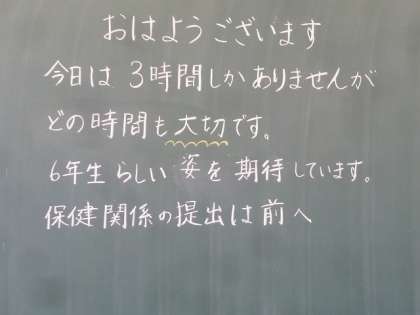 おはようございます
今日は3時間しかありませんが
どの時間も大切です。
6年生らしい姿を期待しています。
保健関係の提出は前へ